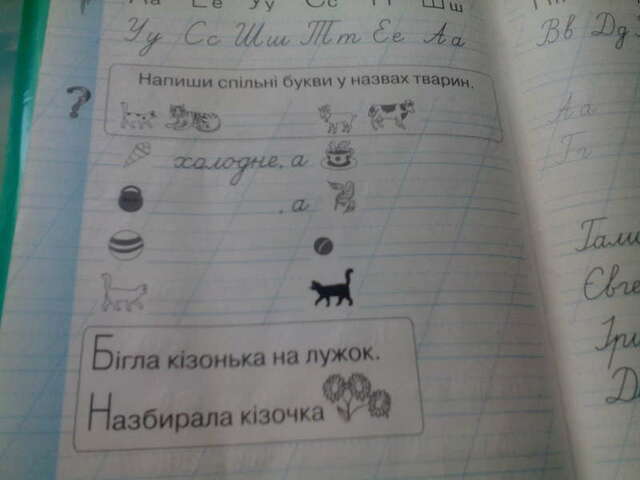 Уу Сс Шш Тт Ее Аа
Напиши спільні букви у назвах тварин.
?
холодне, а
, а
Бігла кізонька на лужок.
Назбирала кізочка
Вв Дд
Аа
Гг